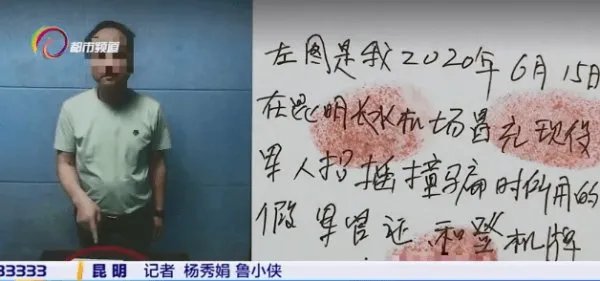 都市频道
左图是我2020年6月15日
在昆明长水机场冒充现役
军人招摇撞骗时所用的
假军官证和登机牌
33333 昆明 记者 杨秀娟 鲁小侠